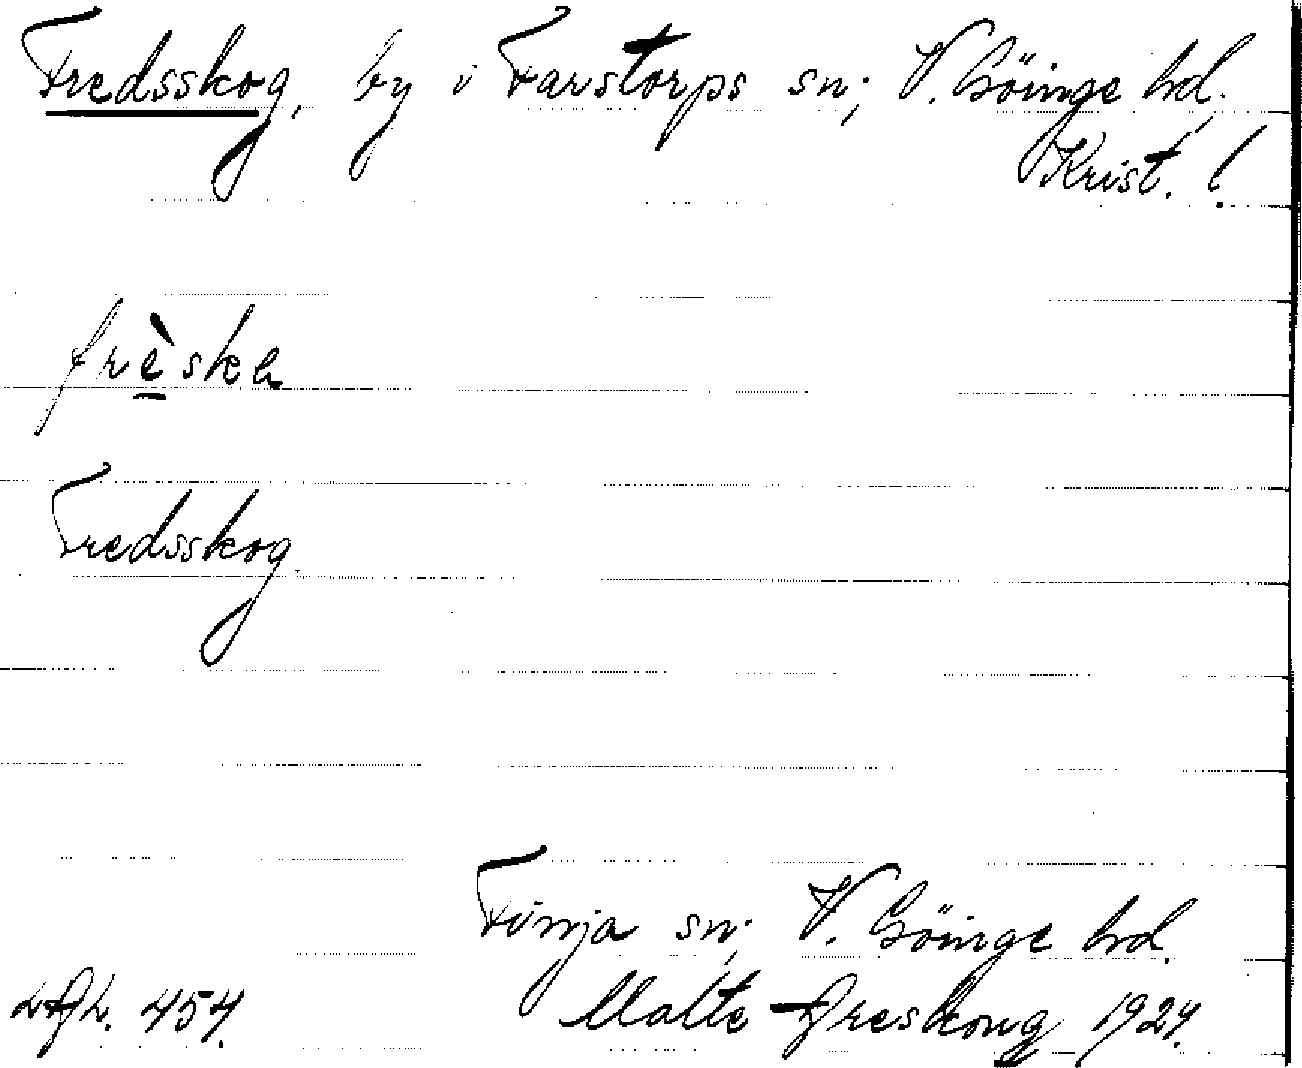 Fredsskog, by i Farstorps sn; V. Göinge hd.
Krist. !
frèska
Fredsskog
Finja sn; V. Göinge hd.
454. Malte Areskoug 1924.